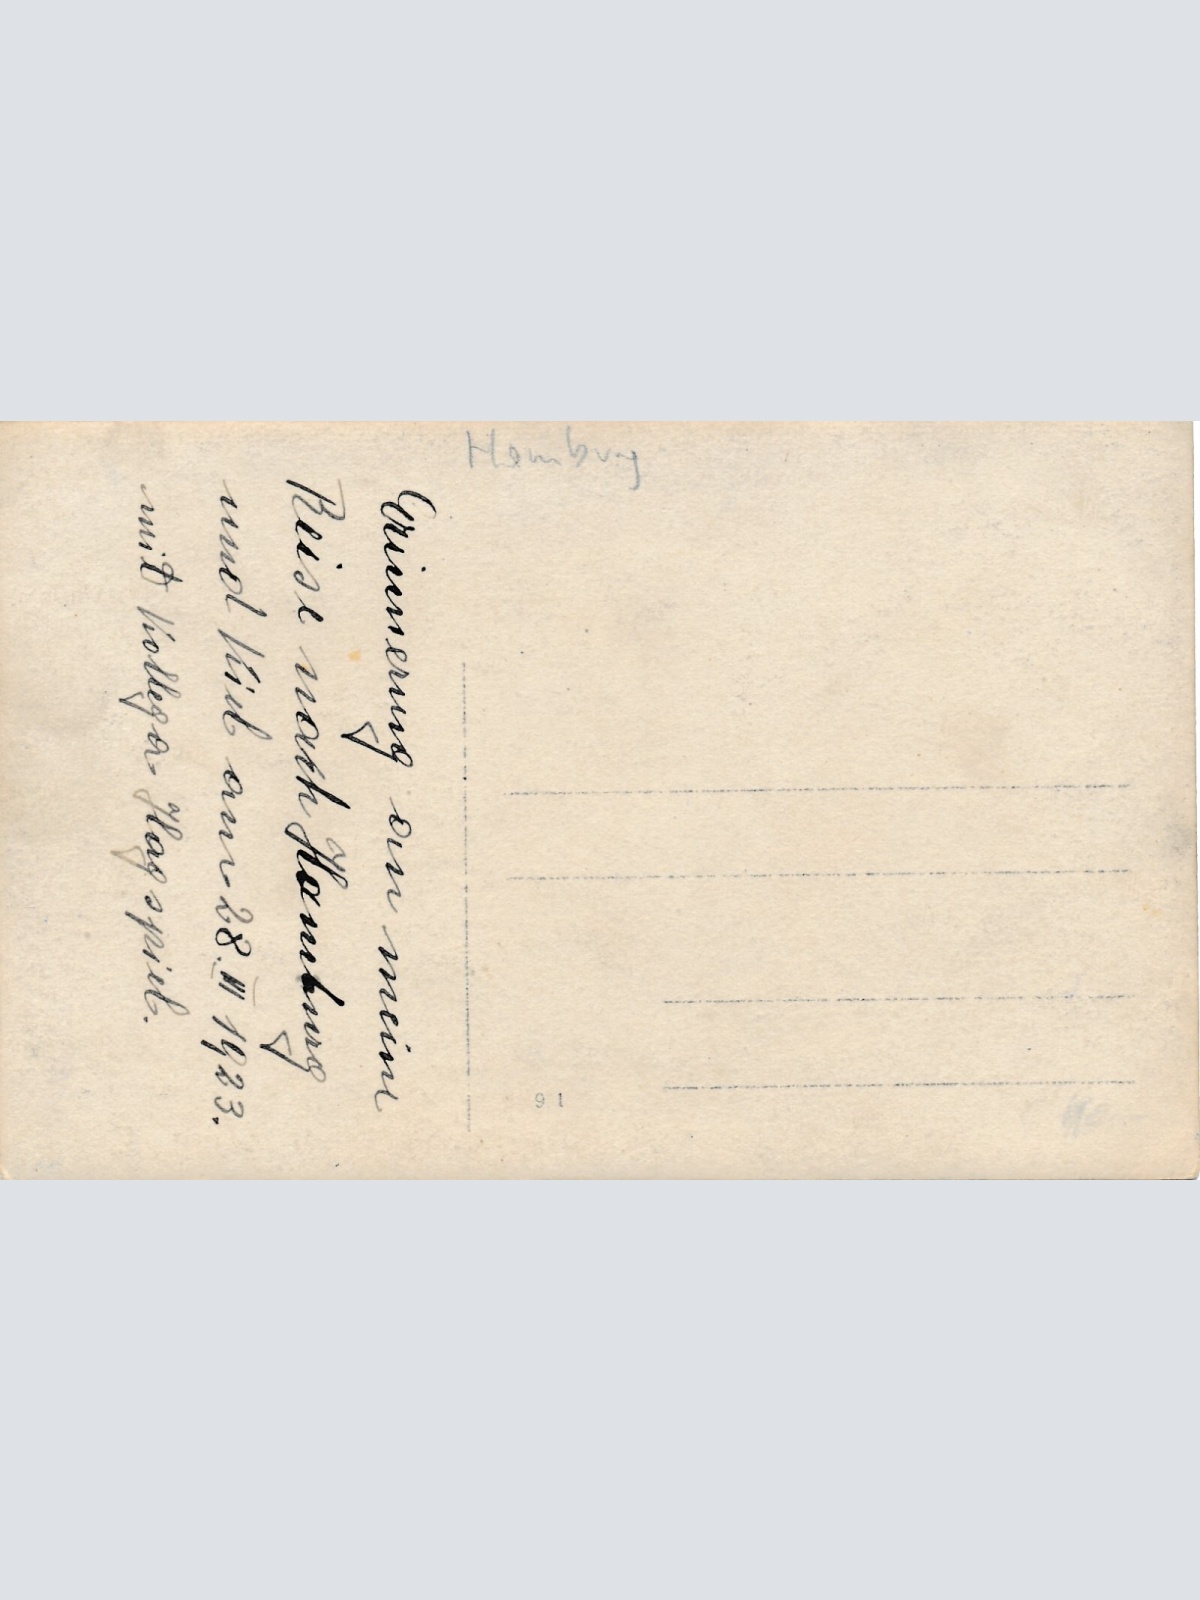 Hamburg
Erinnerung an meine
Reise nach Hamburg
und Kiel am 28. III 1923.
mit Kollega Hagspiel.
91